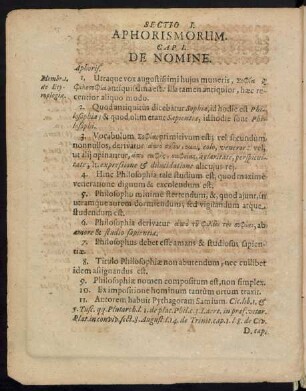 SECTIO I.
APHORISMORUM.
CAP. I.
DE NOMINE.
Aphoris.
Membra.
de Ety-
mologia.
1. Utraque vox augustissimi hujus muneris, Σοφία &
Φιλοσοφία antiquissima est: Illa tamen antiquior, hæc re-
centior aliquo modo.
2. Quod antiquitus dicebatur Sophia, id hodie est Phi-
losophia; & quod olim erant Sapientes, id hodie sunt Phi-
losophi.
3. Vocabulum Σοφία primitivum est; vel secundum
nonnullos, derivatur vel,
ut alii opinantur,
tate, h. expressione & dilucidatione alicujus rei.
4. Hinc Philosophia tale studium est, quod maximè
veneratione dignum & clarissimum est.
5. Philosophus minimè sterendum & quod, ad in-
studendum, & aliis
inserviendum est.
6. Philosophia derivatur ἀπὸ τοῦ φιλεῖν τὴν σοφίαν, ab
amore & studio sapientiæ.
7. Philosophus debet esse amans & studiosus sapien-
tiæ.
8. Titulo Philosophiæ non abutendum, nec cuilibet
idem assignandus est.
9. Philosophia nomen compositum est, non simplex.
10. Ex impositione hominum tantum ortum traxit.
11. Autorem habuit Pythagoram Samium. Cic. lib. 1. &
5. Tusc. qq. Plutarch. l. 1. de plac. Phil. c. 3. Laert. in præf. vitar.
Plat. in conviv. sect. 3. August. l. 14. de Trinit. cap. 1. l. 8. de Civ.
D. cap.